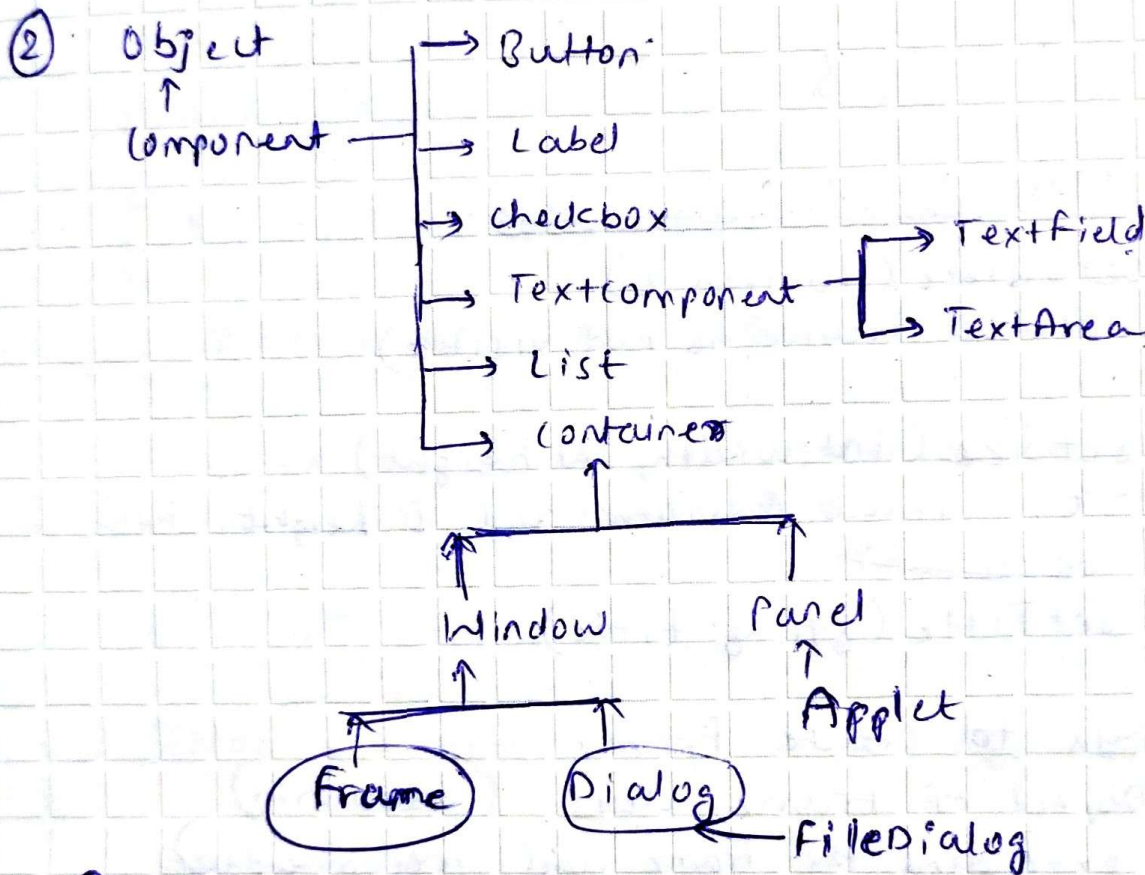 ② Object
Button
Component
Label
checkbox
TextComponent
Textfield
TextArea
List
Container
Window
Panel
Applet
Frame
Dialog
FileDialog